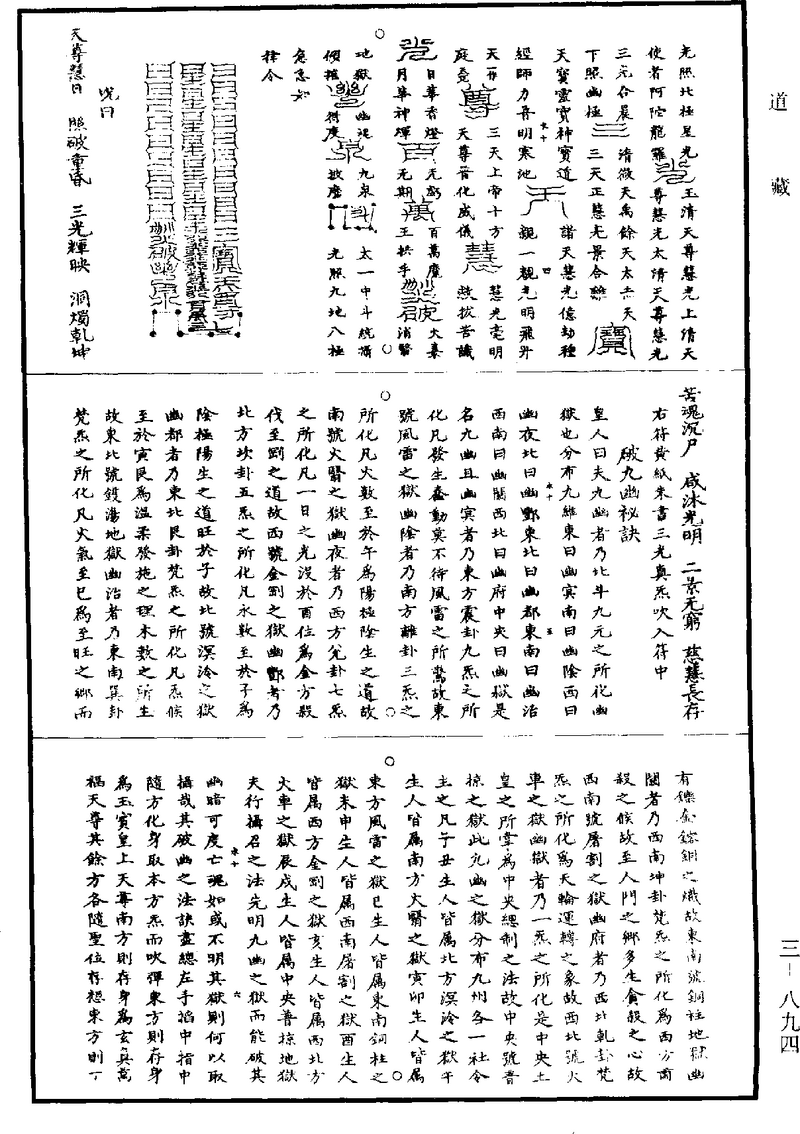 道藏
光照北極星光
玉清天尊慧光上清天
使者阿陀龍羅
尊慧光太清天尊慧光
三元合晨
清微天禹餘天太赤天
下照幽極
三天正慧光景合離
天寶靈寶神寶道
諸天慧光億劫種
經師力吾明寒池
親一親光明飛升
天尊
三天上帝十方
慧光毫明
庭竟
天尊
天尊吾化威儀
救拔苦識
日華香燈
百萬魔
火臺
月華神燁
无期
王拱手
消聲
地獄
幽泥
九泉
太一中斗統攝
傾摧
得度
披塵
光照九地八極
急急如
律令
咒曰
天尊慧日 照破重昏 三光輝映 洞燭乾坤
苦魂沉尸 咸沐光明 二景无窮 慈慧長存
右符黄紙朱書三光真炁吹入符中
破九幽祕訣
皇人曰夫九幽者乃北斗九元之所化幽
獄也分布九維東曰幽冥南曰幽陰西曰
幽夜北曰幽酆東北曰幽都東南曰幽治
西南曰幽關西北曰幽府中央曰幽獄是
名九幽且幽冥者乃東方震卦九炁之所
化凡發生蠢動莫不待風雷之所驚故東
號風雷之獄幽陰者乃南方離卦三炁之
所化凡火數至於午為陽極陰生之道故
南號火翳之獄幽夜者乃西方兌卦七炁
之所化凡一日之光没於酉位為金方殺
伐至剛之道故西號金剛之獄幽酆者乃
北方坎卦五炁之所化凡水數至於子為
陰極陽生之道旺於子故北號溟泠之獄
幽都者乃東北艮卦梵炁之所化凡炁候
至於寅艮為温柔發施之理木數之所生
故東北號鑊湯地獄幽治者乃東南巽卦
梵炁之所化凡火氣至巳為至旺之鄉而
有鑠金鎔銅之熾故東南號銅柱地獄幽
關者乃西南坤卦梵炁之所化為西方商
殺之候故至人門之鄉多生貪殺之心故
西南號屠割之獄幽府者乃西北乾卦梵
炁之所化為天輪運轉之象故西北號火
車之獄幽獄者乃一炁之所化是中央土
皇之所掌為中央總制之法故中央號普
掠之獄此九幽之獄分布九州各一社令
主之凡子丑生人皆屬北方溟泠之獄午
生人皆屬南方火翳之獄寅卯生人皆屬
東方風雷之獄巳生人皆屬東南銅柱之
獄未申生人皆屬西南屠割之獄酉生人
皆屬西方金剛之獄亥生人皆屬西北方
火車之獄辰戌生人皆屬中央普掠地獄
夫行攝召之法先明九幽之獄而能破其
幽暗可度亡魂如或不明其獄則何以取
攝哉其破幽之法訣盡總左手掐中指中
隨方化身取本方炁而吹彈東方則存身
為玉寶皇上天尊南方則存身為玄真萬
福天尊其餘方各隨聖位存想東方則丁
三—八九四